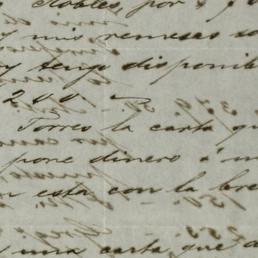 Robles, por
y mis remesas
y tengo disponib
200
Torres la carta qu
pone dinero a m
esta con la bre
una carta que